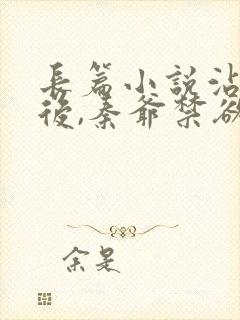 長篇小說沾
後,秦爺禁欲
余是